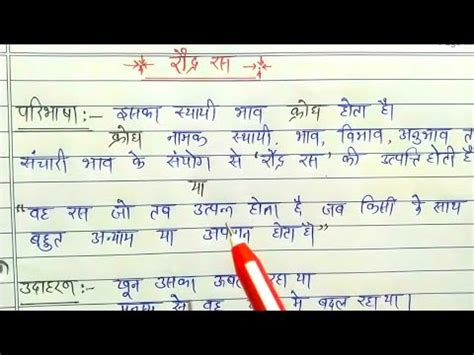 रौद्र रस
परिभाषा :- इसका स्थायी भाव क्रोध होता है।
क्रोध नामक स्थायी भाव, विभाव, अनुभाव त
संचारी भाव के संयोग से 'रौद्र रस' की उत्पत्ति होती है
या
"वह रस जो तब उत्पन्न होता है जब किसी के साथ
बहुत अन्याय या अपमान होता है।"
उदाहरण :- खून उसका उबल रहा था
वह में बदल रहा था।